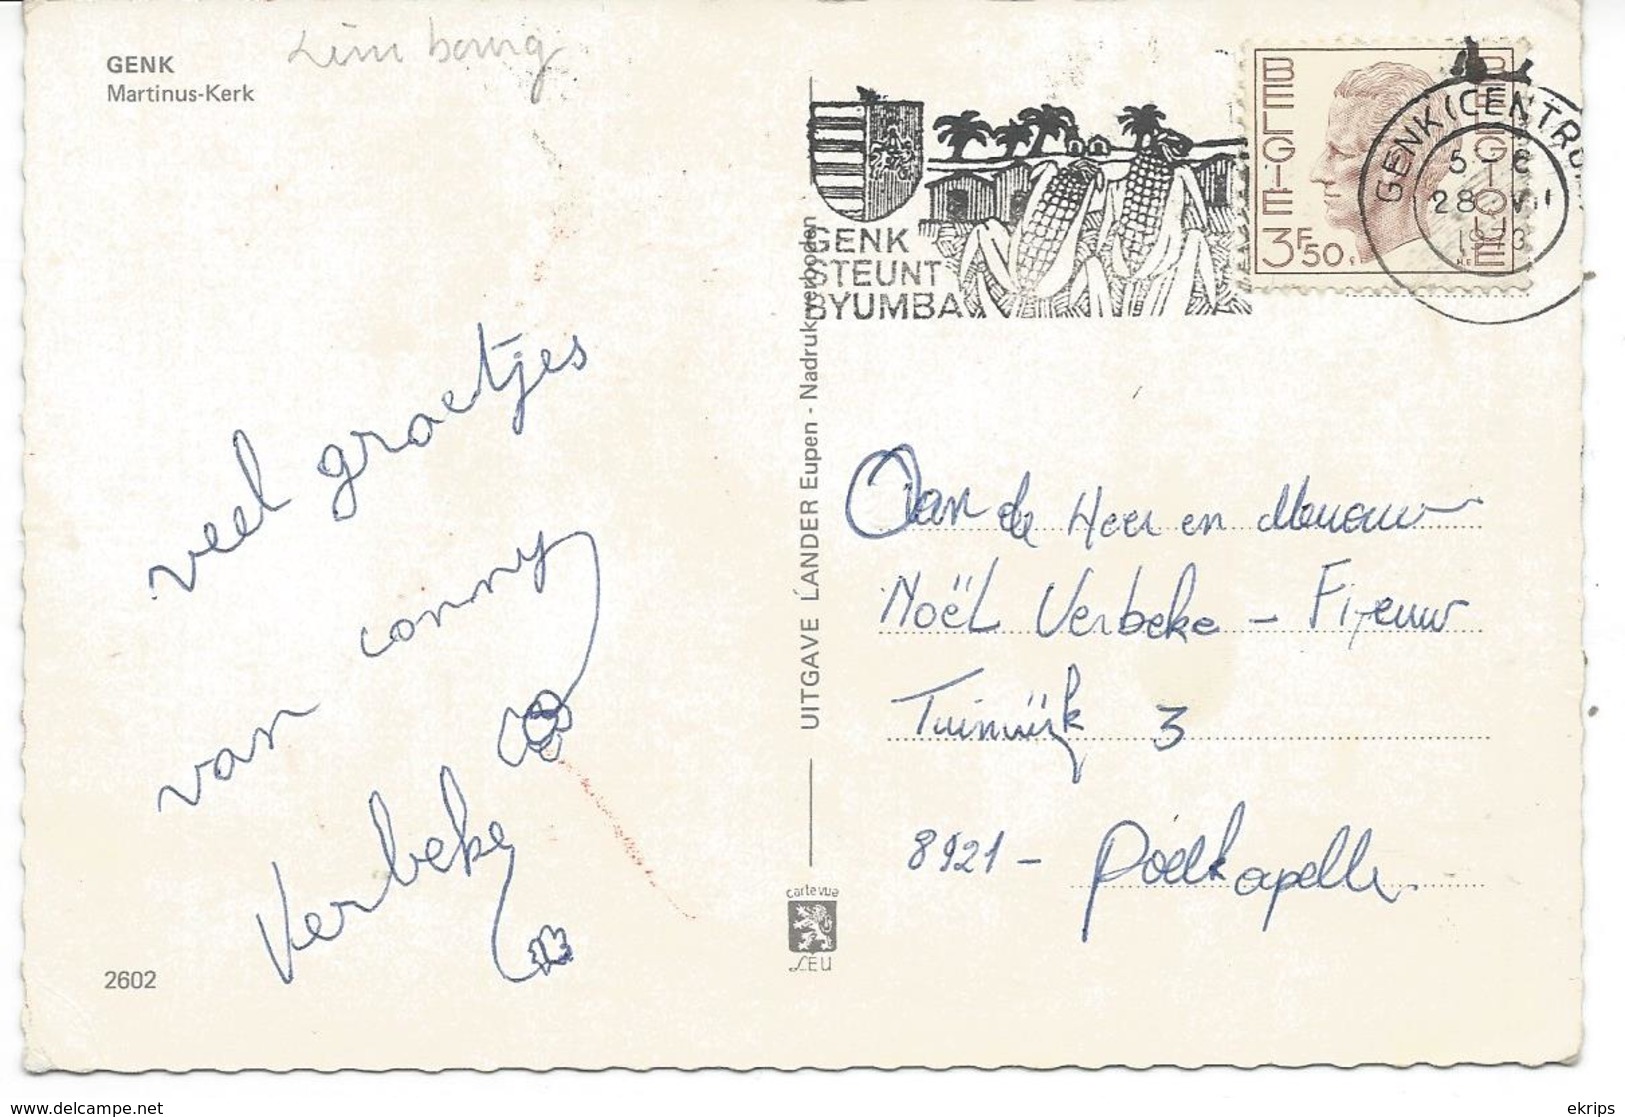 GENK
Martinus-Kerk
Limbourg
BELGIE
BELGIQUE
3F50
GENK (CENTRUM
28 VII
GENK
STEUNT
BYUMBA
veel groetjes
van conny
Verbeke
2602
UITGAVE LANDER Eupen - Nadruk verboden
carte vue
LEU
Aan de Heer en Mevrouw
Noël Verbeke -
Tuinwijk 3
8921 - Poelkapelle
www.delcampe.net
ekrips